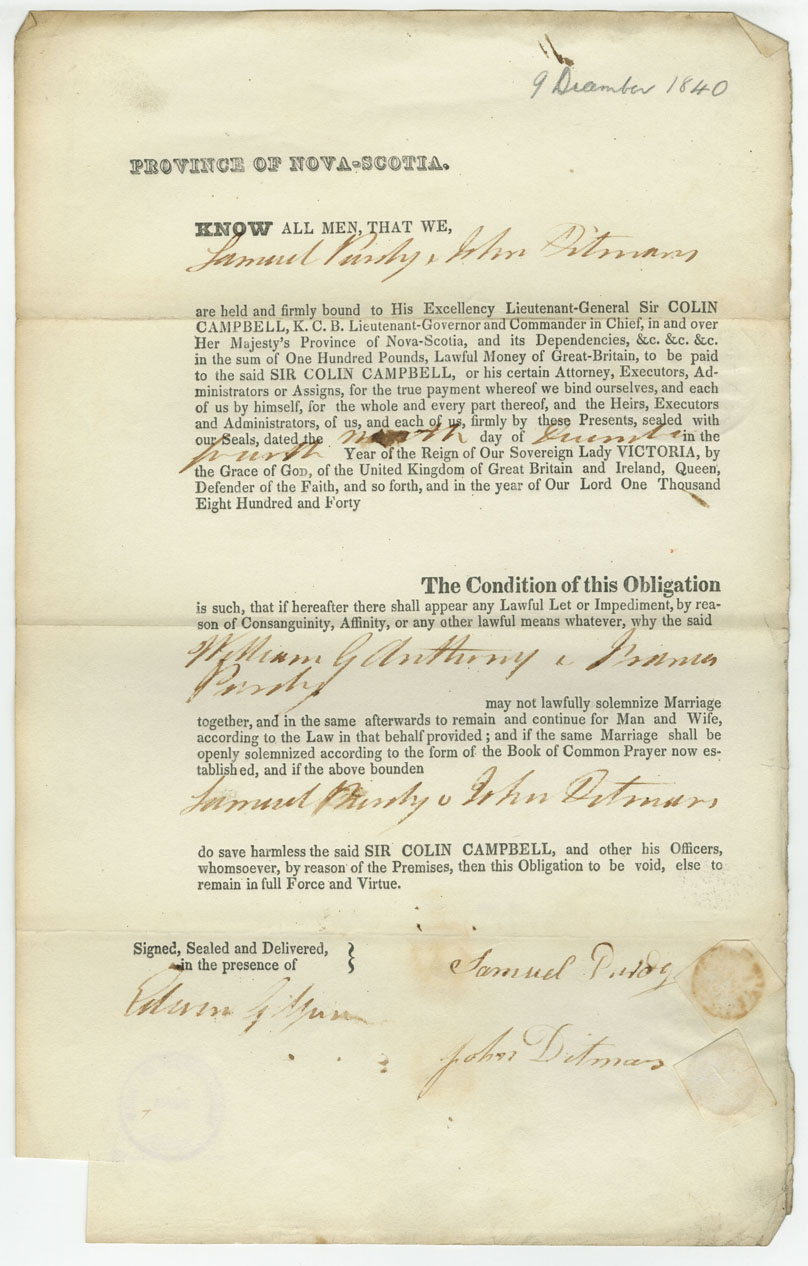 9 December 1840
PROVINCE OF NOVA-SCOTIA.
KNOW ALL MEN, THAT WE,
Samuel Purdy & John Ditmars
are held and firmly bound to His Excellency Lieutenant-General Sir COLIN
CAMPBELL, K. C. B. Lieutenant-Governor and Commander in Chief, in and over
Her Majesty's Province of Nova-Scotia, and its Dependencies, &c. &c. &c.
in the sum of One Hundred Pounds, Lawful Money of Great-Britain, to be paid
to the said SIR COLIN CAMPBELL, or his certain Attorney, Executors, Ad-
ministrators or Assigns, for the true payment whereof we bind ourselves, and each
of us by himself, for the whole and every part thereof, and the Heirs, Executors
and Administrators, of us, and each of us, firmly by these Presents, sealed with
our Seals, dated the ninth day of December in the
fourth Year of the Reign of Our Sovereign Lady VICTORIA, by
the Grace of GOD, of the United Kingdom of Great Britain and Ireland, Queen,
Defender of the Faith, and so forth, and in the year of Our Lord One Thousand
Eight Hundred and Forty
The Condition of this Obligation
is such, that if hereafter there shall appear any Lawful Let or Impediment, by rea-
son of Consanguinity, Affinity, or any other lawful means whatever, why the said
William G Anthony & Frances
Purdy
may not lawfully solemnize Marriage
together, and in the same afterwards to remain and continue for Man and Wife,
according to the Law in that behalf provided; and if the same Marriage shall be
openly solemnized according to the form of the Book of Common Prayer now es-
tablished, and if the above bounden
Samuel Purdy & John Ditmars
do save harmless the said SIR COLIN CAMPBELL, and other his Officers,
whomsoever, by reason of the Premises, then this Obligation to be void, else to
remain in full Force and Virtue.
Signed, Sealed and Delivered,
in the presence of
Samuel Purdy
Edwin Gilpin
John Ditmars